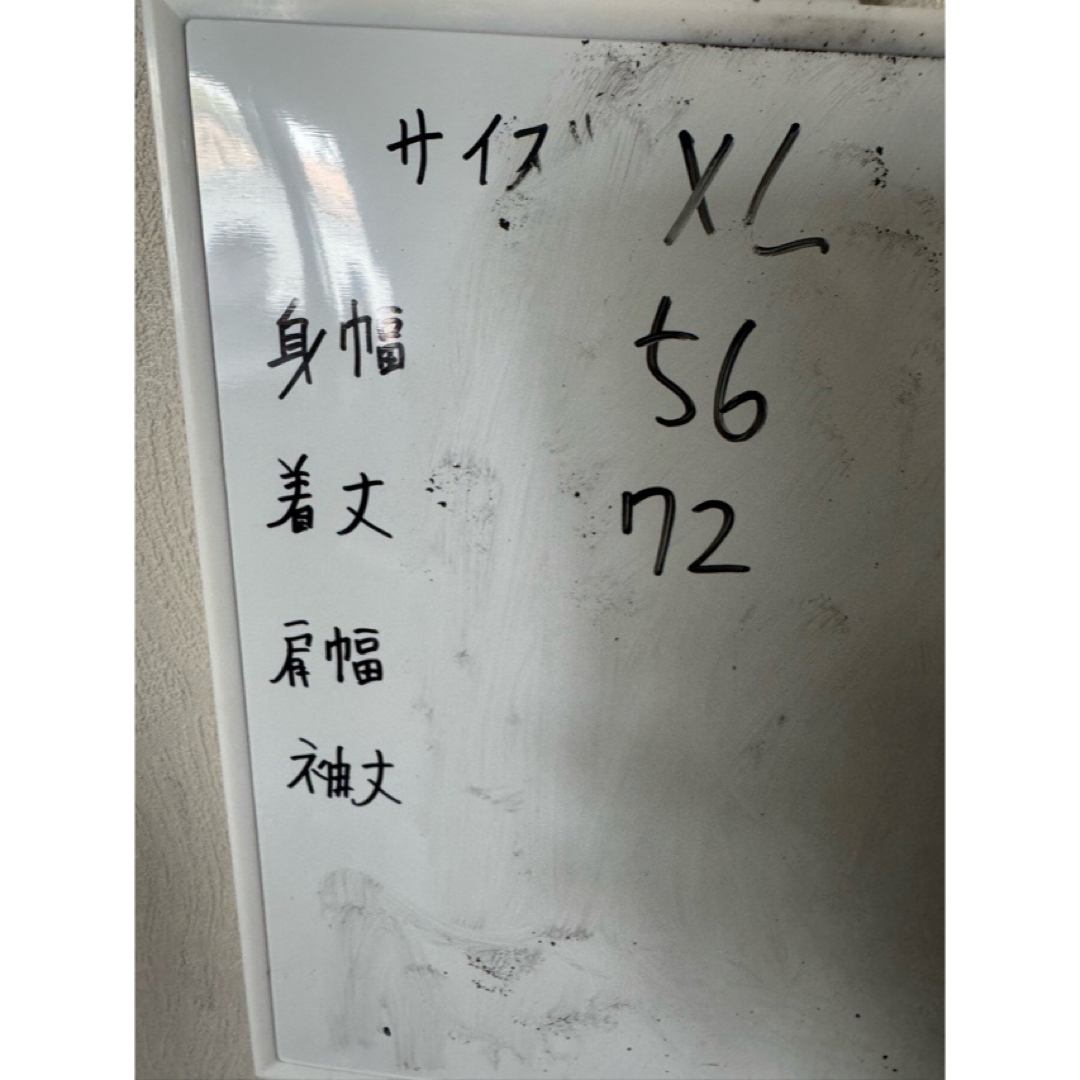 サイズ XL
身幅 56
着丈 72
肩幅
袖丈